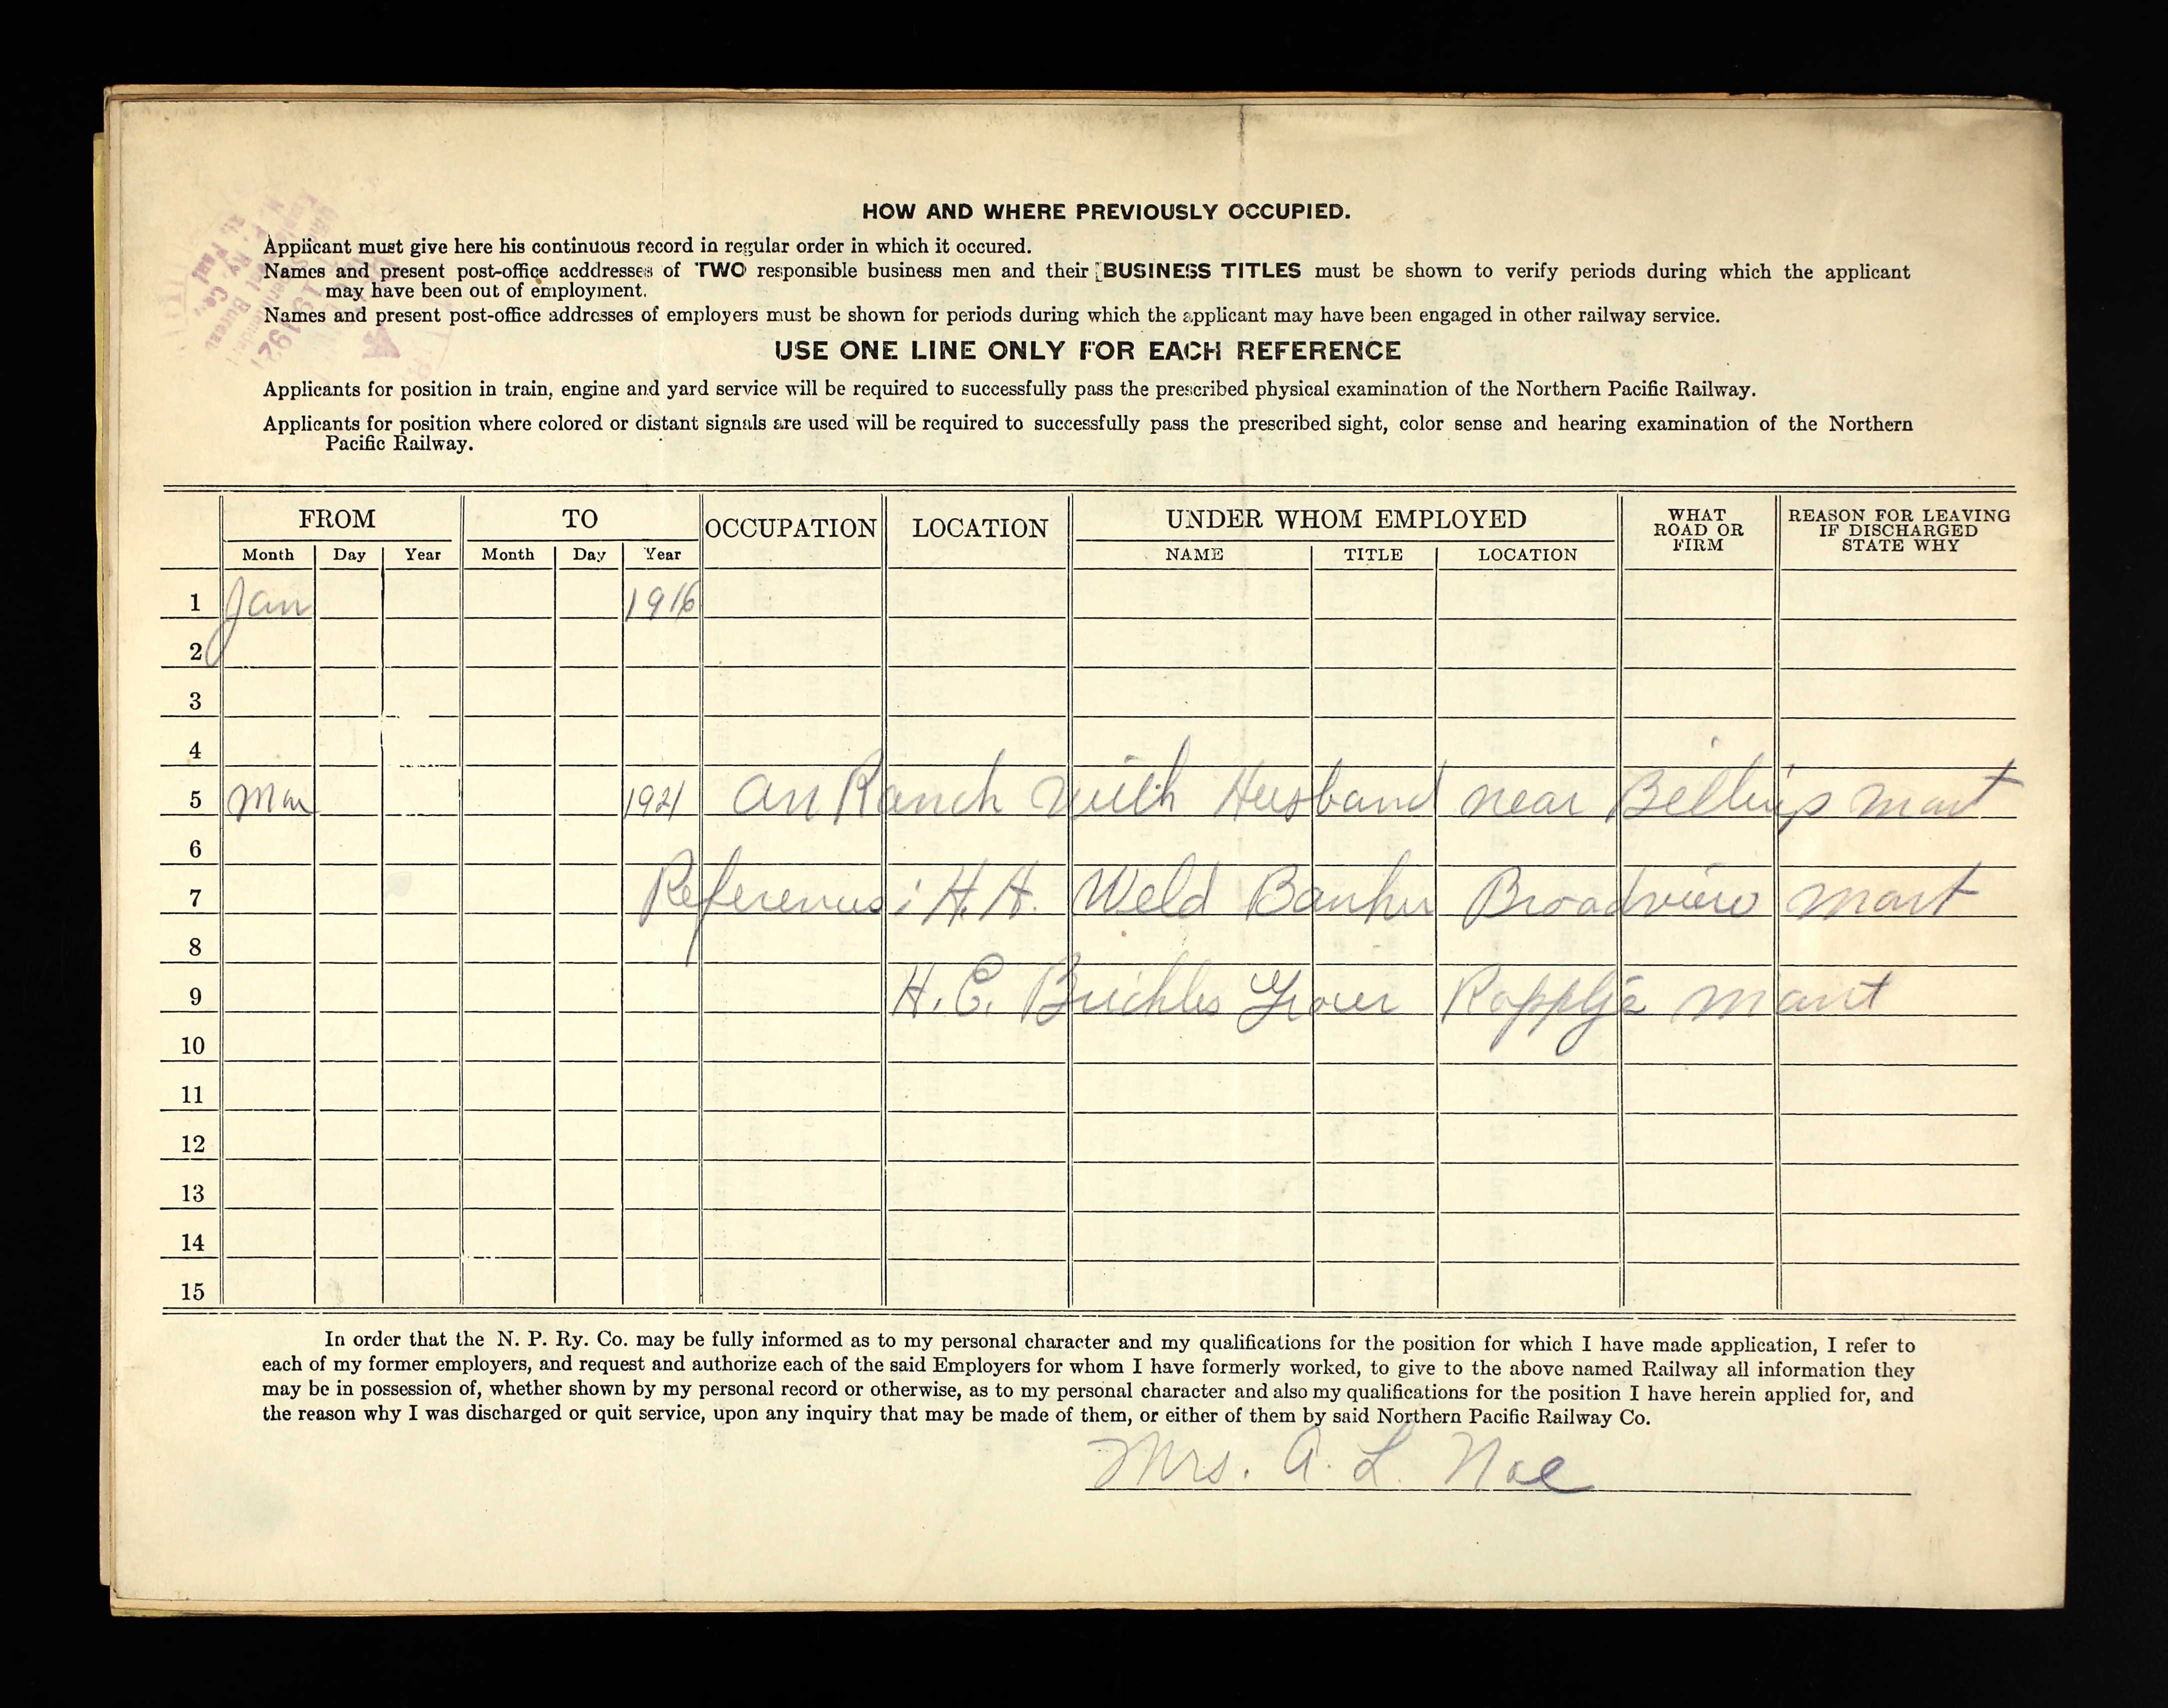 HOW AND WHERE PREVIOUSLY OCCUPIED.
Applicant must give here his continuous record in regular order in which it occured.
Names and present post-office acddresses of TWO responsible business men and their [BUSINESS TITLES must be shown to verify periods during which the applicant
may have been out of employment.
Names and present post-office addresses of employers must be shown for periods during which the applicant may have been engaged in other railway service.
USE ONE LINE ONLY FOR EACH REFERENCE
Applicants for position in train, engine and yard service will be required to successfully pass the prescribed physical examination of the Northern Pacific Railway.
Applicants for position where colored or distant signals are used will be required to successfully pass the prescribed sight, color sense and hearing examination of the Northern
Pacific Railway.
FROM TO OCCUPATION LOCATION UNDER WHOM EMPLOYED WHAT ROAD OR FIRM REASON FOR LEAVING IF DISCHARGED STATE WHY
Month Day Year Month Day Year NAME TITLE LOCATION
1 Jan 1916
2
3
4
5 Mar 1921 On Ranch with Husband near Billings Mont
6
7 References: H. H. Weld Banker Broadview Mont
8
9 H. C. Grocer Mont
10
11
12
13
14
15
In order that the N. P. Ry. Co. may be fully informed as to my personal character and my qualifications for the position for which I have made application, I refer to
each of my former employers, and request and authorize each of the said Employers for whom I have formerly worked, to give to the above named Railway all information they
may be in possession of, whether shown by my personal record or otherwise, as to my personal character and also my qualifications for the position I have herein applied for, and
the reason why I was discharged or quit service, upon any inquiry that may be made of them, or either of them by said Northern Pacific Railway Co.
Mrs. A. L. Noe